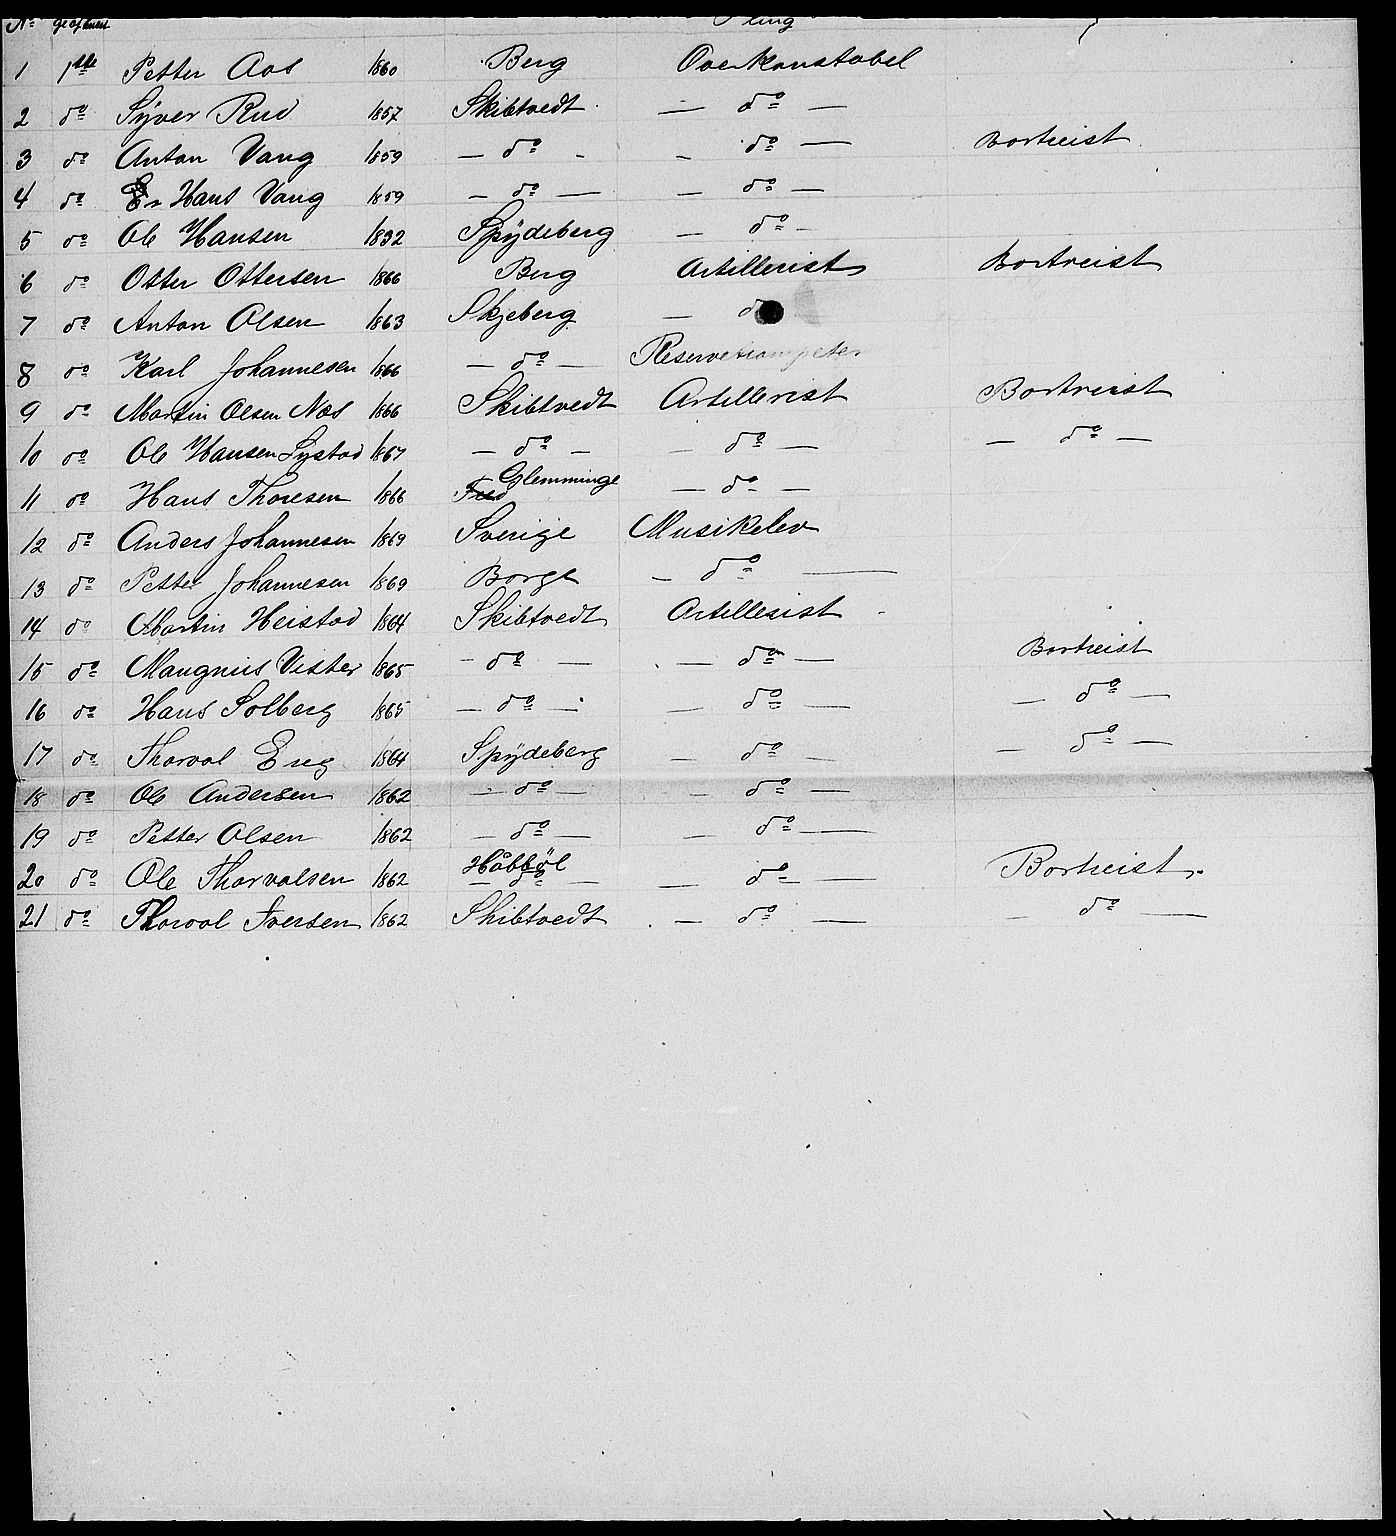 No
1 1ste Petter Aas 1860 Berg Overkonstabel
2 do Syver Rud 1857 Skibtvedt — do —
3 do Anton Vang 1859 — do - - do — bortreist
4 do Hans Vang 1859 — do — — do —
5 do Ole Hansen 1832 Spydeberg — do -
6 do Otter Ottersen 1866 Berg Artillerist Bortreist
7 do Anton Olsen 1863 Skjeberg — d
8 do Karl Johannesen 1866 — do — Reservetrompeter
9 do Martin Olsen Næs 1866 Skibtvedt Artillerist Bortreist
10 do Ole Hansen Systad 1867 — do - - do — — do —
11 do Hans Thoresen 1866 Fred Glemminge — do —
12 do Anders Johannesen 1869 Sverige Musikelev
13 do Petter Johannesen 1869 Borge — do —
14 do Martin Heistad 1864 Skibtvedt Artillerist
15 do Maugnus Vister 1865 - do — — do — Bortreist
16 do Hans Solberg 1865 — do — — do — — do —
17 do Thorval Eng 1864 Spydeberg — do — — do —
18 do Ole Andersen 1862 — do — — do —
19 do Petter Olsen 1862 — do — — do —
20 do Ole Thorvalsen 1862 — do — Håbböl — do — Bortreist.
21 do Thorval Iversen 1862 Skibtvedt — do — — do —